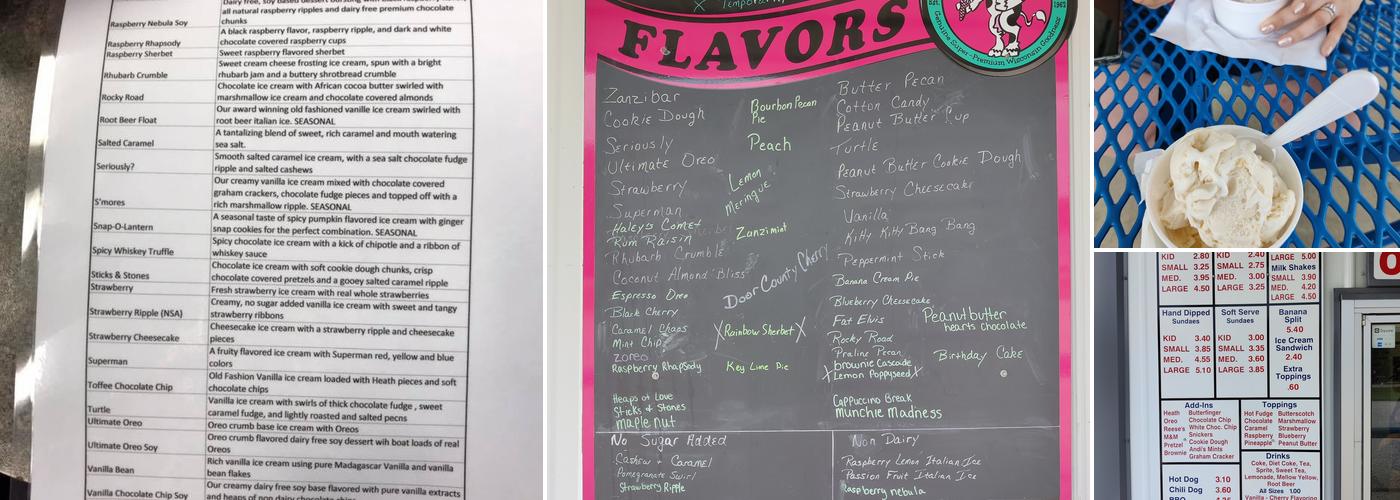 Dairy free, soy based dessert bursting with
all natural raspberry ripples and dairy free premium chocolate
chunks
Raspberry Nebula Soy
A black raspberry flavor, raspberry ripple, and dark and white
chocolate covered raspberry cups
Raspberry Rhapsody
Raspberry Sherbet
Sweet raspberry flavored sherbet
Sweet cream cheese frosting ice cream, spun with a bright
rhubarb jam and a buttery shrotbread crumble
Rhubarb Crumble
Chocolate ice cream with African cocoa butter swirled with
marshmallow ice cream and chocolate covered almonds
Rocky Road
Our award winning old fashioned vanille ice cream swirled with
root beer italian ice. SEASONAL
Root Beer Float
A tantalizing blend of sweet, rich caramel and mouth watering
sea salt.
Salted Caramel
Smooth salted caramel ice cream, with a sea salt chocolate fudge
ripple and salted cashews
Seriously?
Our creamy vanilla ice cream mixed with chocolate covered
graham crackers, chocolate fudge pieces and topped off with a
rich marshmallow ripple. SEASONAL
S'mores
A seasonal taste of spicy pumpkin flavored ice cream with ginger
snap cookies for the perfect combination. SEASONAL
Snap-O-Lantern
Spicy chocolate ice cream with a kick of chipotle and a ribbon of
whiskey sauce
Spicy Whiskey Truffle
Chocolate ice cream with soft cookie dough chunks, crisp
chocolate covered pretzels and a gooey salted caramel ripple
Sticks & Stones
Strawberry
Fresh strawberry ice cream with real whole strawberries
Creamy, no sugar added vanilla ice cream with sweet and tangy
strawberry ribbons
Strawberry Ripple (NSA)
Cheesecake ice cream with a strawberry ripple and cheesecake
pieces
Strawberry Cheesecake
A fruity flavored ice cream with Superman red, yellow and blue
colors
Superman
Old Fashion Vanilla ice cream loaded with Heath pieces and soft
chocolate chips
Toffee Chocolate Chip
Vanilla ice cream with swirls of thick chocolate fudge , sweet
caramel fudge, and lightly roasted and salted pecns
Turtle
Ultimate Oreo
Oreo crumb base ice cream with Oreos
Oreo crumb flavored dairy free soy dessert wih boat loads of real
Oreos
Ultimate Oreo Soy
Rich vanilla ice cream using pure Madagascar Vanilla and vanilla
bean flakes
Vanilla Bean
Our creamy dairy free soy base flavored with pure vanilla extracts
and heaps of non dairy chocolate chips
Vanilla Chocolate Chip Soy
FLAVORS
Genuine Super-Premium Wisconsin Goodness
1962
Zanzibar
Cookie Dough
Seriously
Ultimate Oreo
Strawberry
Superman
Haley's Comet
Rum Raisin
Rhubarb Crumble
Coconut Almond Bliss
Espresso Oreo
Black Cherry
Caramel Chaos
Mint Chip
Zoreo
Raspberry Rhapsody
Heaps of Love
Sticks & Stones
maple nut
Bourbon Pecan
Pie
Peach
Lemon
Meringue
Zanzimint
Door County Cherry
X Rainbow Sherbet X
Key Lime Pie
Butter Pecan
Cotton Candy
Peanut Butter Cup
Turtle
Peanut Butter Cookie Dough
Strawberry Cheesecake
Vanilla
Kitty Kitty Bang Bang
Peppermint Stick
Banana Cream Pie
Blueberry Cheesecake
Fat Elvis
Rocky Road
Praline Pecan
brownie Cascade
X Lemon Poppyseed X
Cappuccino Break
Munchie Madness
Peanutbutter
hearts chocolate
Birthday Cake
No Sugar Added
Cashew & Caramel
Pomegranate Swirl
Strawberry Ripple
Non Dairy
Raspberry Lemon Italian Ice
Passion Fruit Italian Ice
Raspberry nebula
KID 2.80
SMALL 3.25
MED. 3.95
LARGE 4.50
KID 2.40
SMALL 2.75
MED. 3.00
LARGE 3.25
LARGE 5.00
Milk Shakes
SMALL 3.90
MED. 4.20
LARGE 4.50
Hand Dipped
Sundaes
KID 3.40
SMALL 3.85
MED. 4.55
LARGE 5.10
Soft Serve
Sundaes
KID 3.00
SMALL 3.35
MED. 3.60
LARGE 3.85
Banana
Split
5.40
Ice Cream
Sandwich
2.40
Extra
Toppings
.60
Add-Ins
Heath
Oreo
Reese's
M&M
Pretzel
Brownie
Butterfinger
Chocolate Chip
White Choc. Chip
Snickers
Cookie Dough
Andi's Mints
Graham Cracker
Toppings
Hot Fudge
Chocolate
Caramel
Raspberry
Pineapple
Butterscotch
Marshmallow
Strawberry
Blueberry
Peanut Butter
Drinks
Coke, Diet Coke, Tea,
Sprite, Sweet Tea,
Lemonade, Mellow Yellow,
Root Beer
All Sizes 1.00
Vanilla - Cherry Flavoring
Hot Dog 3.10
Chili Dog 3.60